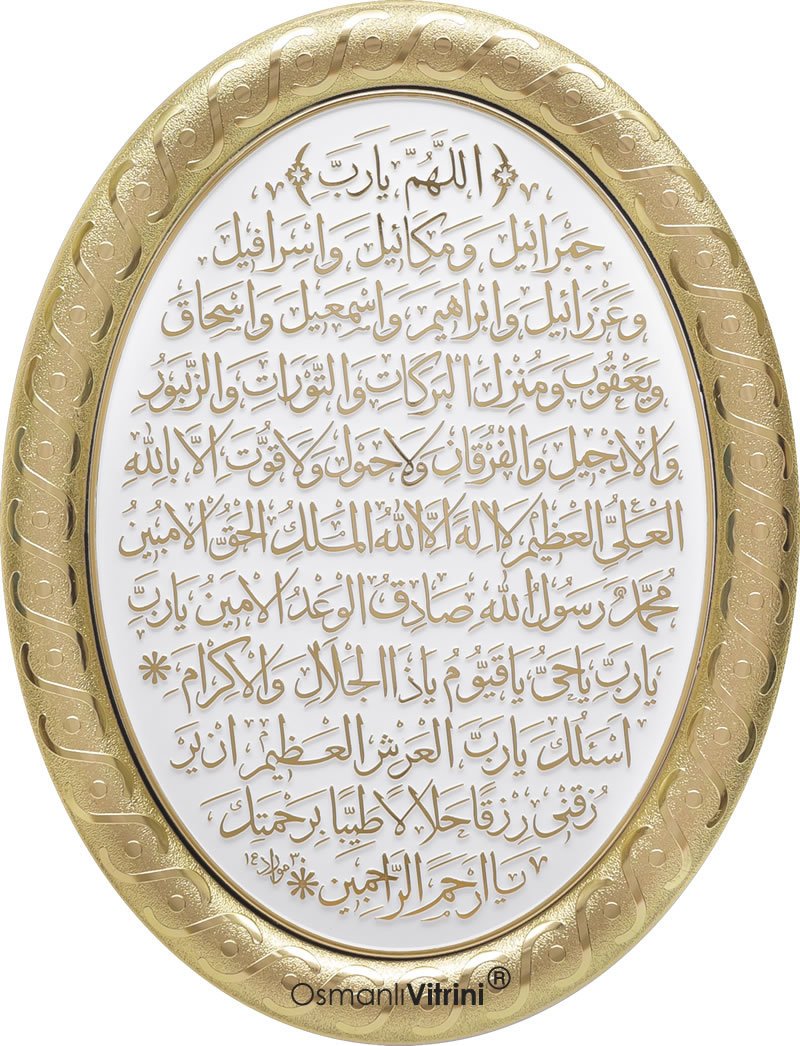 اَللّٰهُمَّ يَارَبَّ
جَبْرَائِيلَ وَمِكَائِيلَ وَاِسْرَافِيلَ
وَعَزْرَائِيلَ وَاِبْرَاهِيمَ وَاِسْمٰعِيلَ وَاِسْحَاقَ
وَيَعْقُوبَ وَمُنْزِلَ الْبَرَكَاتِ وَالتَّوْرَاتِ وَالزَّبُورِ
وَالْاِنْجِيلِ وَالْفُرْقَانِ وَلَا حَوْلَ وَلَا قُوَّتَ اِلَّا بِاللّٰهِ
الْعَلِيِّ الْعَظِيمِ لَا اِلٰهَ اِلَّا اللّٰهُ الْمَلِكُ الْحَقُّ الْاَمُبِينُ
مُحَمَّدٌ رَسُولُ اللّٰهِ صَادِقُ الْوَعْدُ الْاَمِينُ يَارَبِّ
يَارَبِّ يَاحَىُّ يَاقَيُّومُ يَاذَا الْجَلَالِ وَالْاِكْرَامِ *
اَسْئَلُكَ يَارَبَّ الْعَرْشِ الْعَظِيمِ اَنْ يَرْ
زُقَنِى رِزْقًا حَلَالًا طَيِّبًا بِرَحْمَتِكَ
يَا اَرْحَمَ الرَّاحِمِينَ *
OsmanlıVitrini®